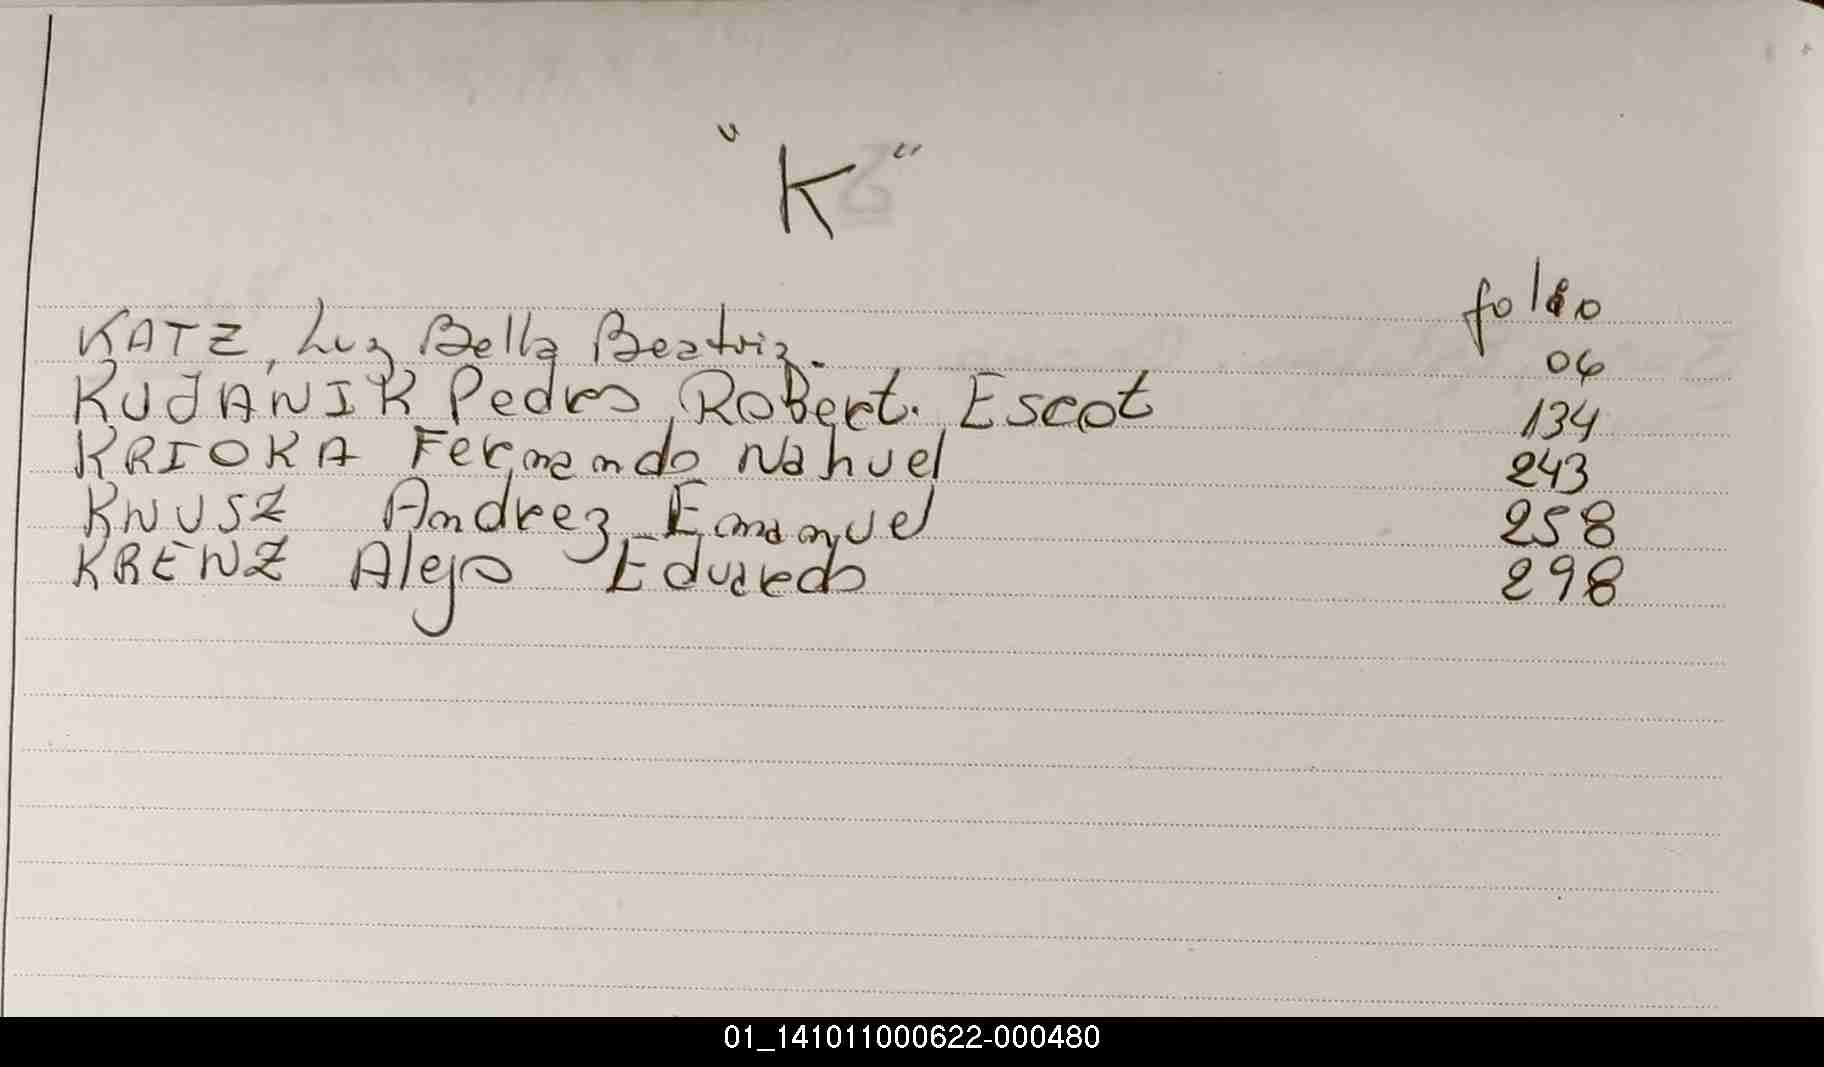 "K"
folio
KATZ, Luz Bella Beatriz. 04
KUJANIK Pedro Robert. Escot 134
KRIOKA Fernando Nahuel 243
KNUSZ Andrez Emanuel 258
KRENZ Alejo Eduardo 298
01_141011000622-000480